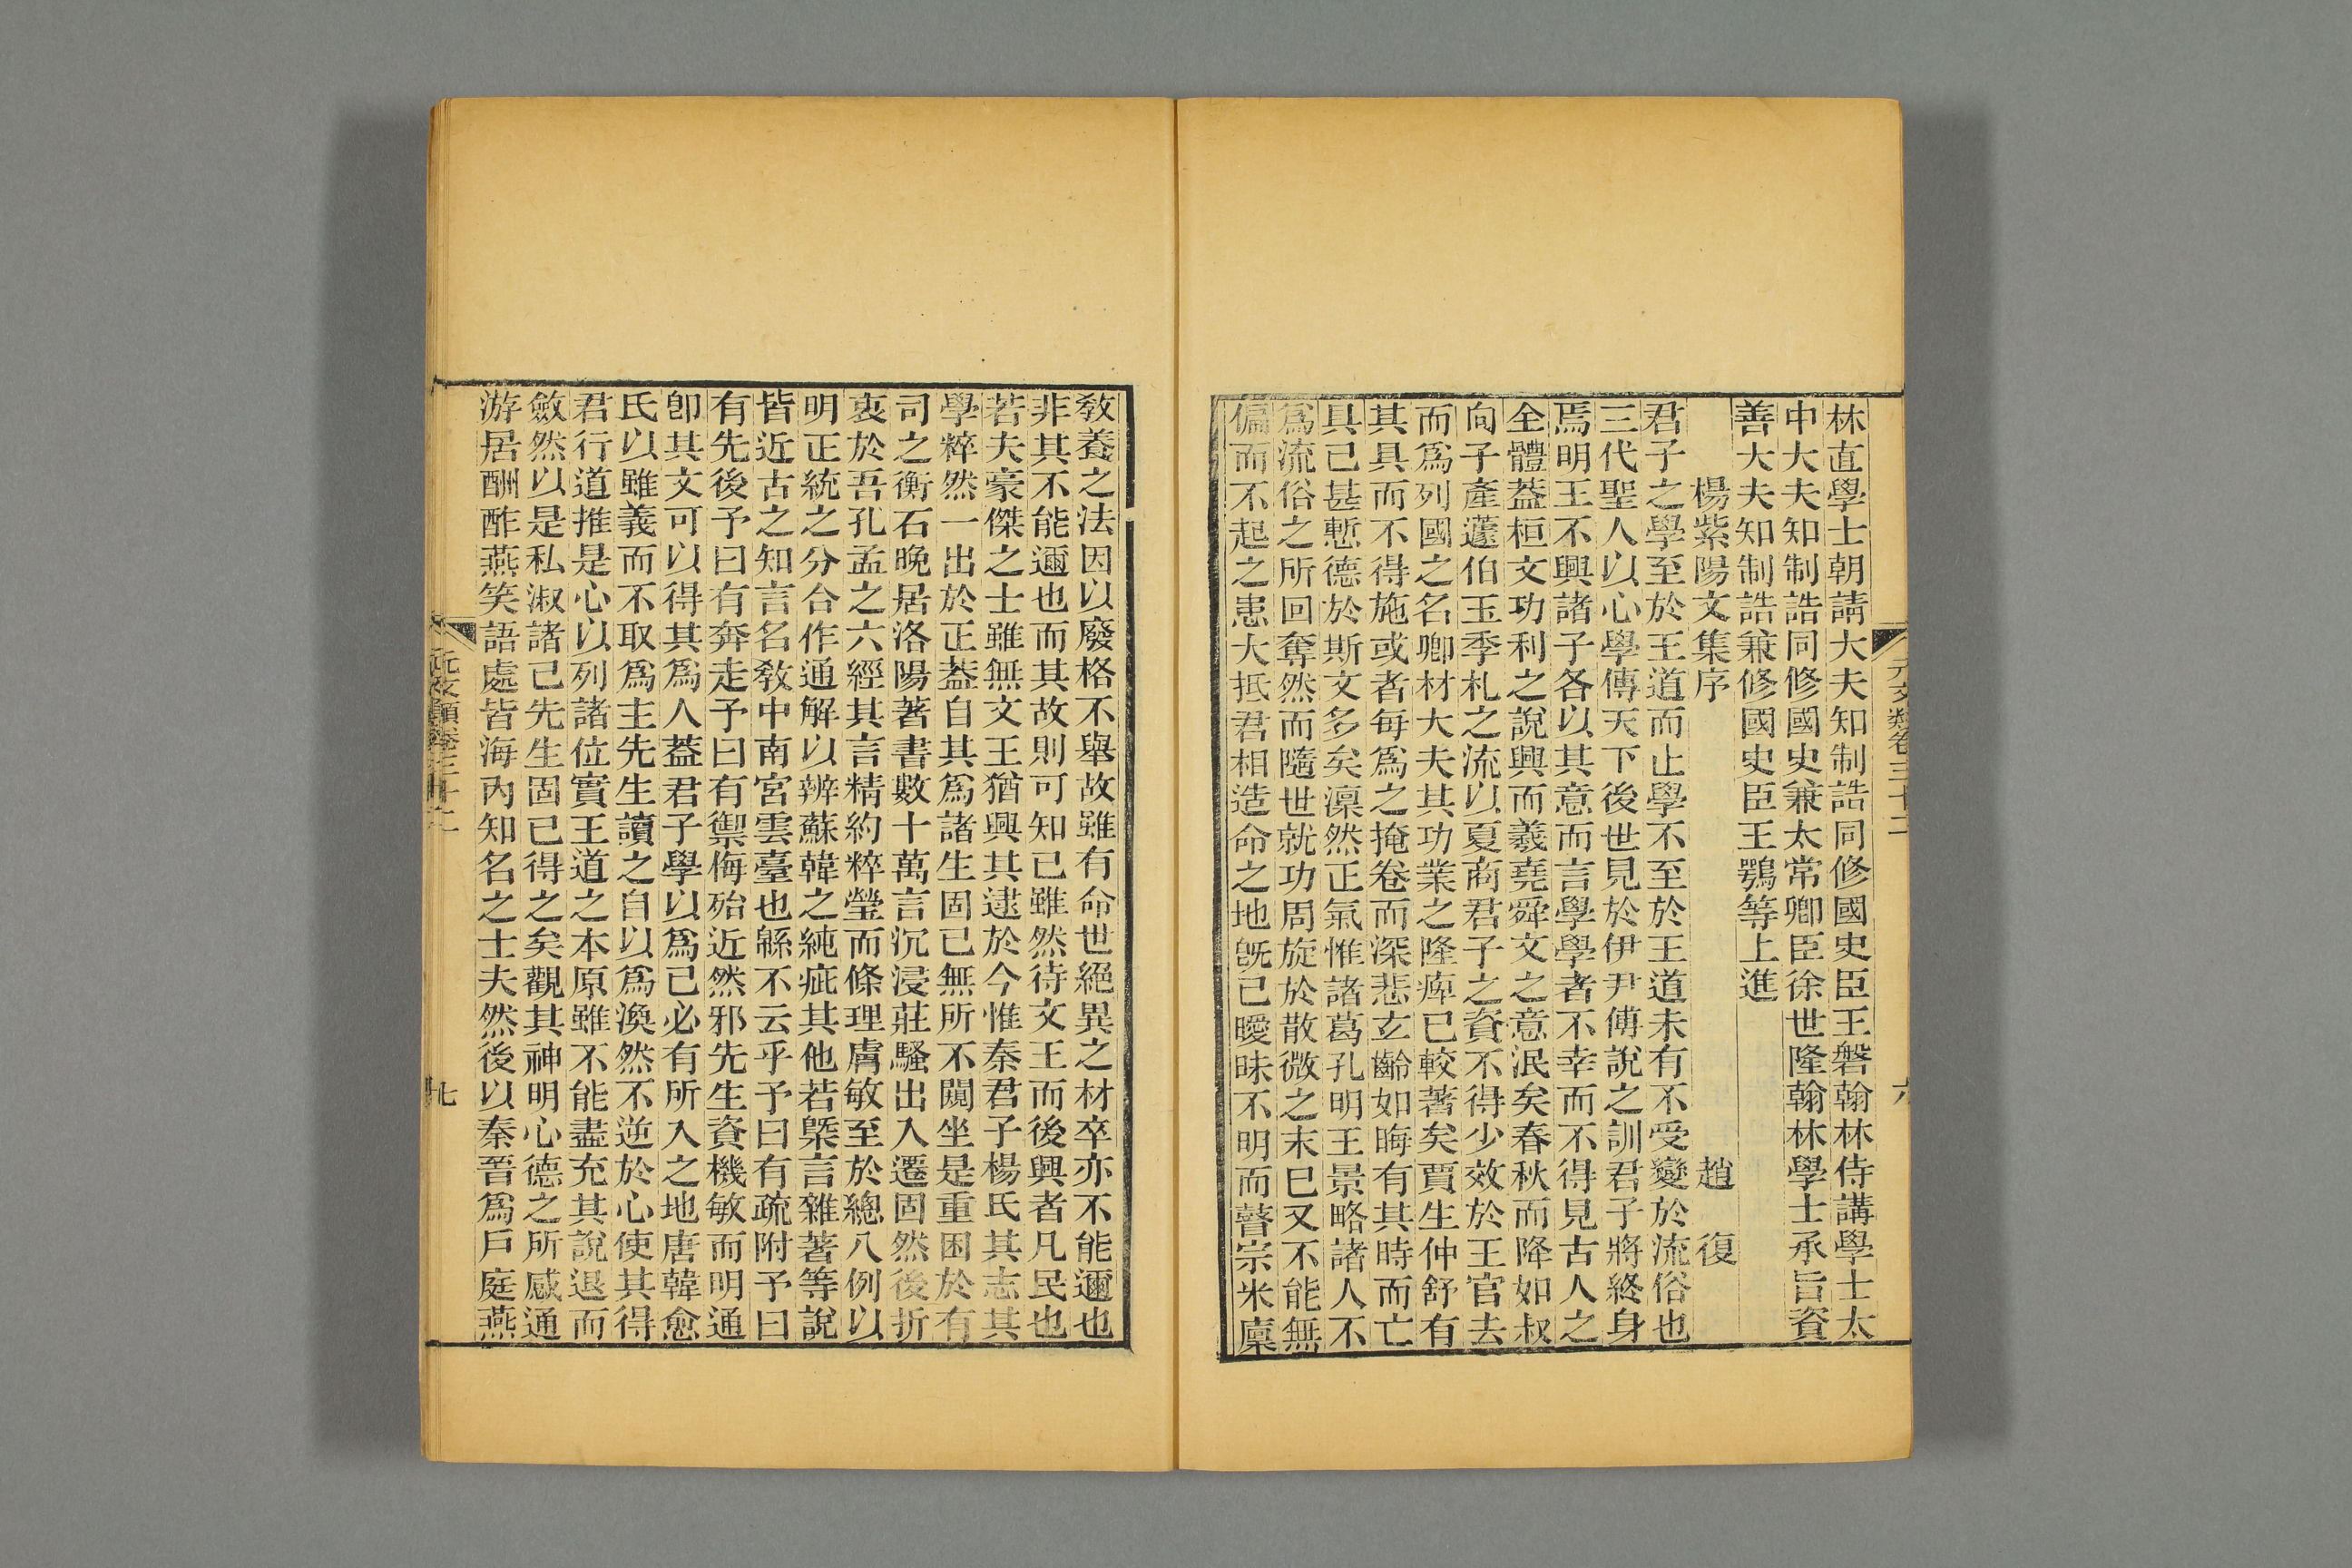 林直學士朝請大夫知制誥同修國史臣王磐翰林侍講學士太
中大夫知制誥同修國史兼太常卿臣徐世隆翰林學士承旨資
善大夫知制誥兼修國史臣王鶚等上進
楊紫陽文集序 趙復
君子之學至於王道而止學不至於王道未有不受變於流俗也
三代聖人以心學傳天下後世見於伊尹傅說之訓君子將終身
焉明王不興諸子各以其意而言學學者不幸而不得見古人之
全體蓋桓文功利之說興而羲堯舜文之意泯矣春秋而降如叔
向子產蘧伯玉季札之流以夏商君子之資不得少效於王官去
而爲列國之名卿材大夫其功業之隆庳已較著矣賈生仲舒有
其具而不得施或者每爲之掩卷而深悲玄齡如晦有其時而亡
具已甚慙德於斯文多矣凜然正氣惟諸葛孔明王景略諸人不
爲流俗之所回奪然而隨世就功周旋於散微之末巳又不能無
偏而不起之患大抵君相造命之地旣已曖昧不明而瞽宗米廩
敎養之法因以廢格不舉故雖有命世絕異之材卒亦不能邇也
非其不能邇也而其故則可知已雖然待文王而後興者凡民也
若夫豪傑之士雖無文王猶興其逮於今惟秦君子楊氏其志其
學粹然一出於正蓋自其爲諸生固已無所不闚坐是重困於有
司之衡石晚居洛陽著書數十萬言沉浸莊騷出入遷固然後折
衷於吾孔孟之六經其言精約粹瑩而條理膚敏至於總八例以
明正統之分合作通解以辨蘇韓之純疵其他若槩言雜著等說
皆近古之知言名敎中南宮雲臺也繇不云乎予曰有疏附予曰
有先後予曰有奔走予曰有禦侮殆近然邪先生資機敏而明通
卽其文可以得其爲人蓋君子學以爲己必有所入之地唐韓愈
氏以雖義而不取爲主先生讀之自以爲渙然不逆於心使其得
君行道推是心以列諸位實王道之本原雖不能盡充其說退而
斂然以是私淑諸己先生固已得之矣觀其神明心德之所感通
游居酬酢燕笑語處皆海內知名之士夫然後以秦晉爲戶庭燕
元文類卷三十二
六
元文類卷三十二
七